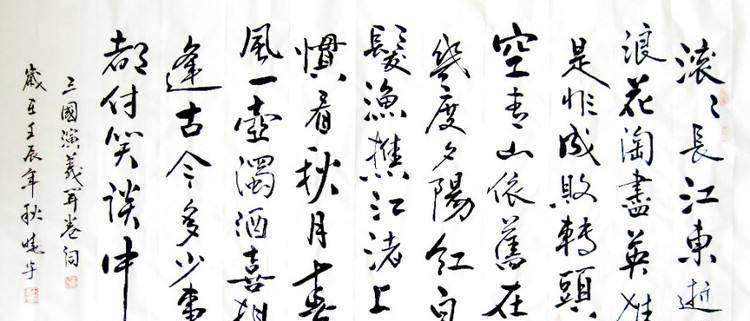 滚滚長江東逝
浪花淘盡英雄
是非成敗轉頭
空青山依舊在
幾度夕陽紅白
髮漁樵江渚上
慣看秋月春
風一壺濁酒喜相
逢古今多少事
都付笑談中
三國演義開卷詞
歲 壬辰年秋曉宇